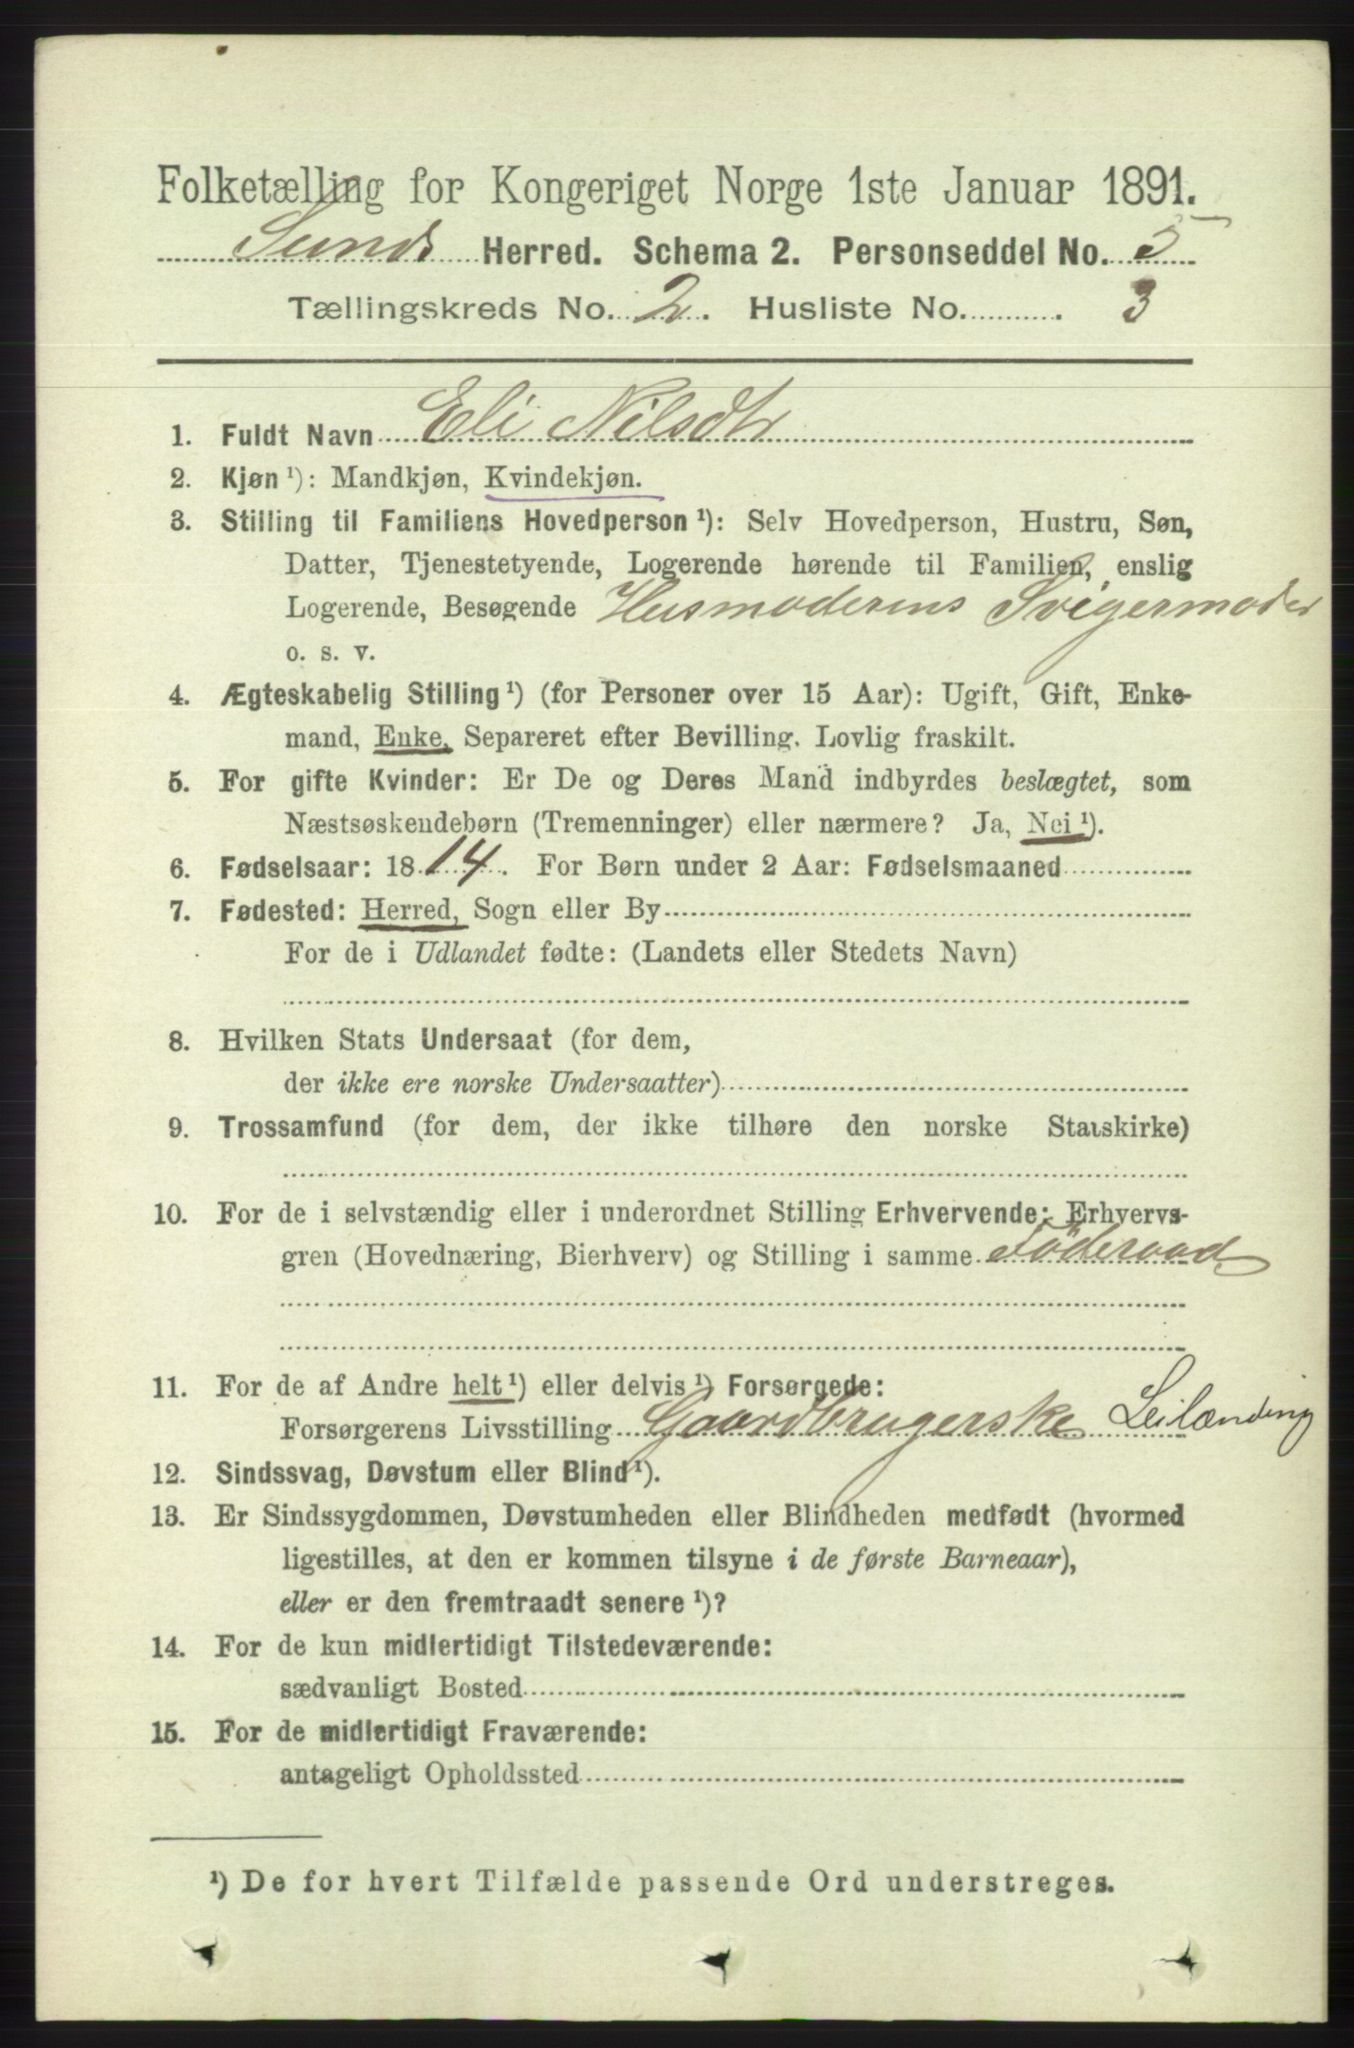 Folketælling for Kongeriget Norge 1ste Januar 1891.
Sunds Herred. Schema 2. Personseddel No. 5
Tællingskreds No. 2. Husliste No. 3
1. Fuldt Navn Eli Nilsdtr
2. Kjøn ¹): Mandkjøn, Kvindekjøn.
3. Stilling til Familiens Hovedperson ¹): Selv Hovedperson, Hustru, Søn,
Datter, Tjenestetyende, Logerende hørende til Familien, enslig
Logerende, Besøgende Husmoderens Svigermoder
o. s. v.
4. Ægteskabelig Stilling ¹) (for Personer over 15 Aar): Ugift, Gift, Enke-
mand, Enke, Separeret efter Bevilling. Lovlig fraskilt.
5. For gifte Kvinder: Er De og Deres Mand indbyrdes beslægtet, som
Næstsøskendebørn (Tremenninger) eller nærmere? Ja, Nei ¹).
6. Fødselsaar: 1814. For Børn under 2 Aar: Fødselsmaaned
7. Fødested: Herred, Sogn eller By
For de i Udlandet fødte: (Landets eller Stedets Navn)
8. Hvilken Stats Undersaat (for dem,
der ikke ere norske Undersaatter)
9. Trossamfund (for dem, der ikke tilhøre den norske Statskirke)
10. For de i selvstændig eller i underordnet Stilling Erhvervende: Erhvervs-
gren (Hovednæring, Bierhverv) og Stilling i samme Föderaad
11. For de af Andre helt ¹) eller delvis ¹) Forsørgede:
Forsørgerens Livsstilling Gaardbrugerske Leilænding
12. Sindssvag, Døvstum eller Blind ¹).
13. Er Sindssygdommen, Døvstumheden eller Blindheden medfødt (hvormed
ligestilles, at den er kommen tilsyne i de første Barneaar),
eller er den fremtraadt senere ¹)?
14. For de kun midlertidigt Tilstedeværende:
sædvanligt Bosted
15. For de midlertidigt Fraværende:
antageligt Opholdssted
¹) De for hvert Tilfælde passende Ord understreges.